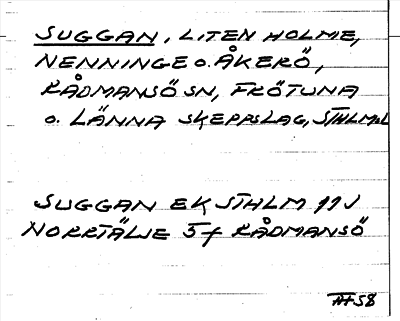 SUGGAN, LITEN HOLME,
NENNINGE o. ÅKERÖ,
RÅDMANSÖ SN, FRÖTUNA
o. LÄNNA SKEPPSLAG, STHLMSL
SUGGAN EK STHLM 11J
NORRTÄLJE 5f RÅDMANSÖ
58